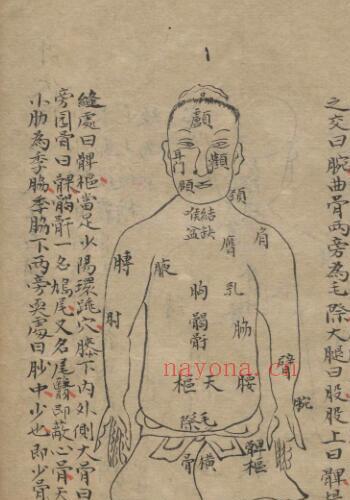 之交曰腕曲骨兩旁為毛際大腿曰股股上曰髀
顱
顴
耳門
頤
頸
結喉
缺盆
肩
膺
膊
腋
乳
胸
𩩲骬
肋
肘
臂
天樞
腰
腕
毛際
橫骨
髀樞
縫處曰髀樞當足少陽環跳穴膝下內外側大骨曰
旁圓骨曰髁𩩲骬一名鳩尾又名尾翳即蔽心骨天
小肋為季脇季脇下兩旁耎處曰䏚中少也即少骨
nayona.cn